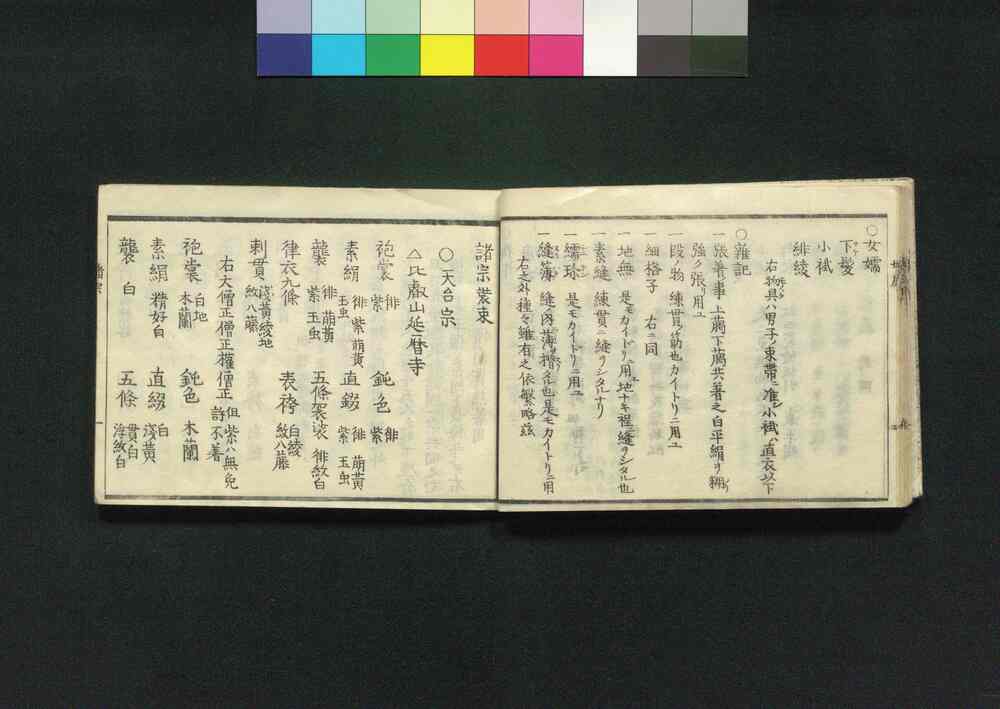 ○女嬬
下髪
小袿
緋綾
右物具ハ男子ノ束帯ニ准シ小袿ハ直衣以下
○雜記
一張著ノ事 上﨟下﨟共著之白平絹ヲ糊
強ク張リ用ユ
一段ノ物 練貫ノ筋也カイトリニ用ユ
一細格子 右ニ同
一地無 是モカイトリニ用地ナキ程ニ縫ヲシタル也
一素縫 練貫ニ縫ヲシタルナリ
一繻珎 是モカイトリニ用ユ
一縫薄 縫ノ内薄ヲ摺タル也是モカイトリニ用
右之外種々雖有之依繁略茲
諸宗裝束
○天台宗
△比叡山延暦寺
袍裳 緋 紫 鈍色 緋 紫
素絹 緋 紫 萠黄 玉虫 直綴 緋 萠黄 紫 玉虫
襲 緋 萠黄 紫 玉虫 五條袈裟 緋紋白
律衣九條 表袴 白綾 紋八藤
刺貫 淺黄綾地 紋八藤
右大僧正僧正權僧正 但紫ハ無免許不著
袍裳 白地 木蘭 鈍色 木蘭
素絹 精好白 直綴 白 淺黄
襲 白 五條 貫白 浮紋白
諸宗
一